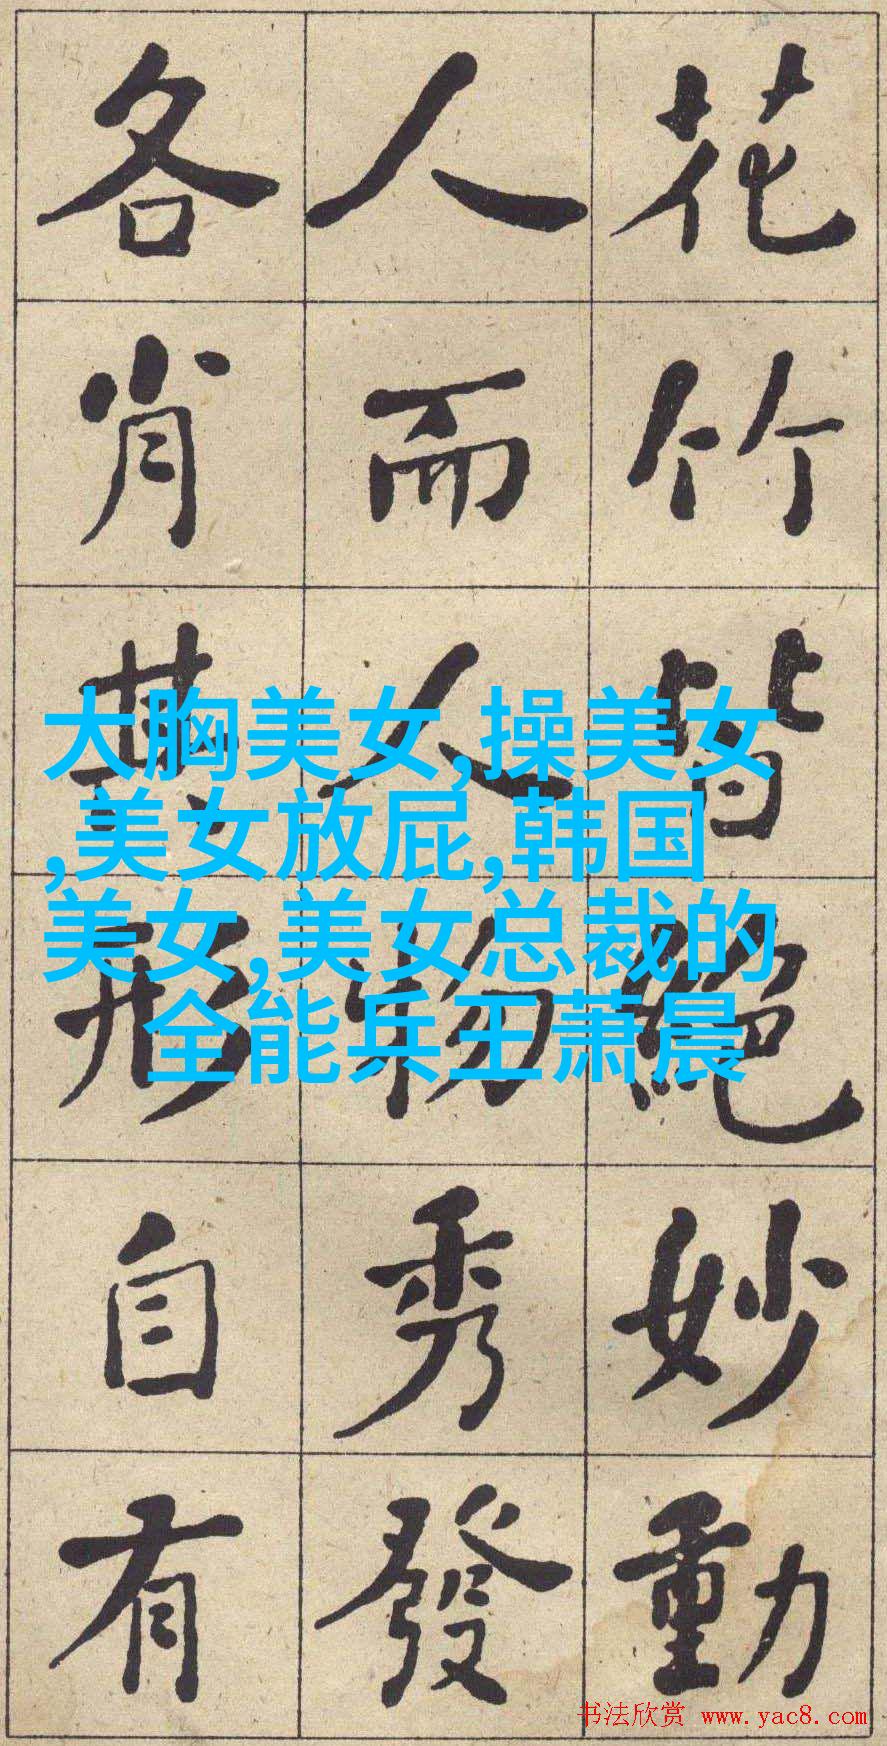 花竹皆絶妙動
人而人物秀發
各肖其形自有
大胸美女,操美女
,美女放屁,韩国
美女,美女总裁的
全能兵王萧晨
书法欣赏 www.yac8.com